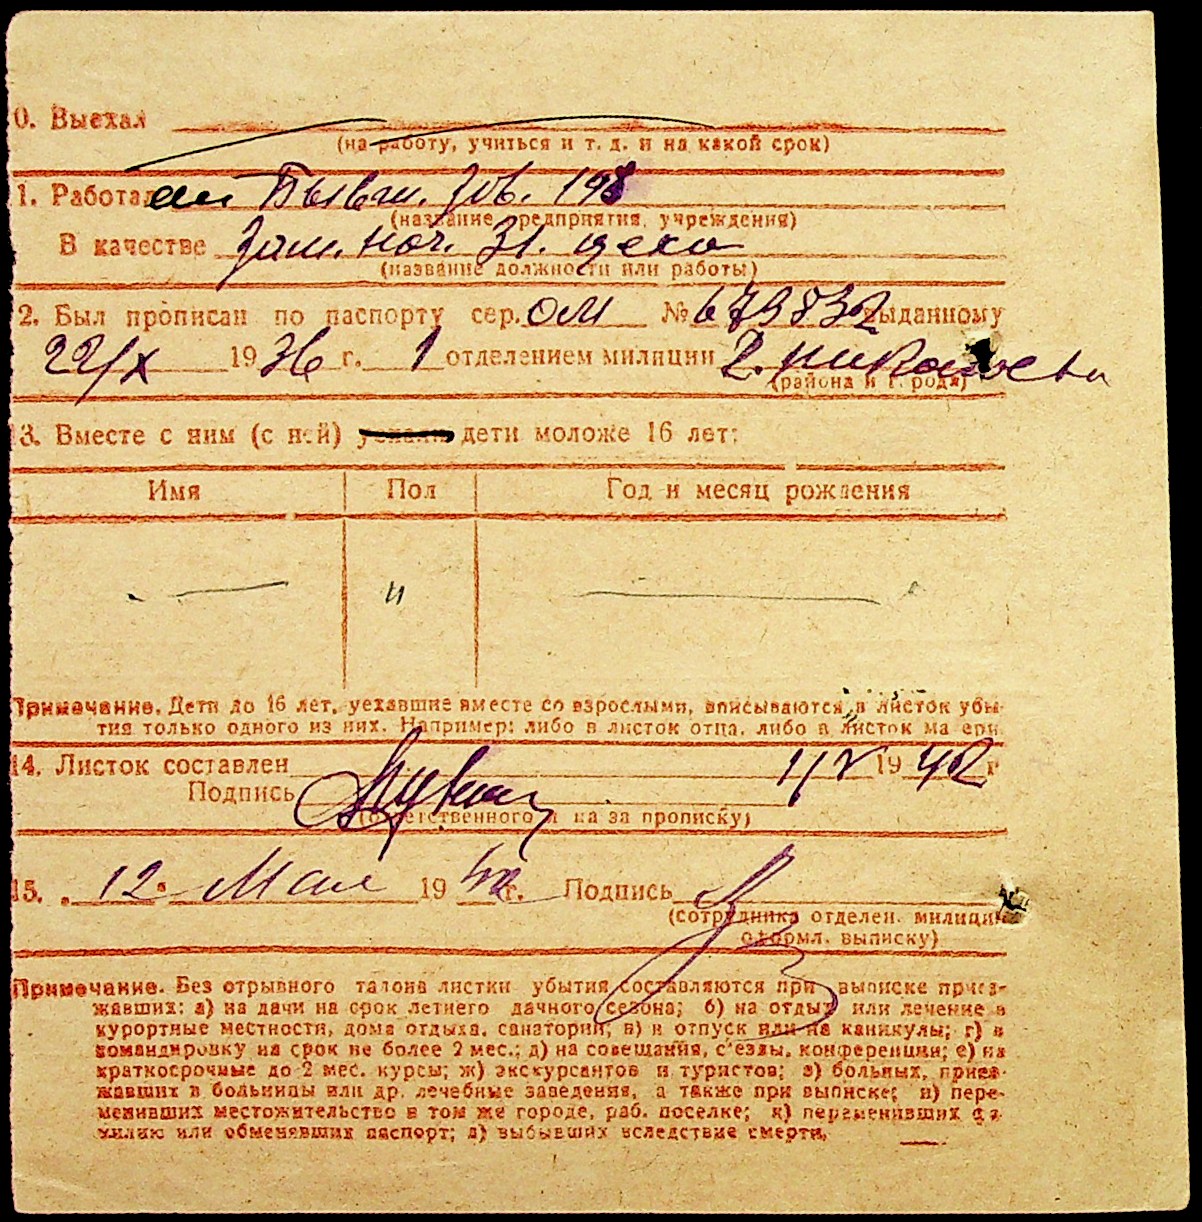 0. Выехал
(на работу, учиться и т. д. и на какой срок)
1. Работал Бывш. Зав. 198
(название предприятия, учреждения)
В качестве Зам. нач. 31. цеха
(название должности или работы)
2. Был прописан по паспорту сер. ОМ № 679832 выданному
22/X 1936 г. 1 отделением милиции г. Николаева
(района и г. рода)
13. Вместе с ним (с ней) уехали дети моложе 16 лет:
Имя Пол Год и месяц рождения
— " —
Примечание. Дети до 16 лет, уехавшие вместе со взрослыми, вписываются в листок убы-
тия только одного из них. Например: либо в листок отца, либо в листок ма ери
14. Листок составлен 11/V 1942 г
Подпись
(ответственного л ка за прописку)
15. „12" Мая 1942 г. Подпись
(сотрудника отделен. милиции
оформл. выписку)
Примечание. Без отрывного талона листки убытия составляются при выписке приез-
жавших: а) на дачи на срок летнего дачного сезона; б) на отдых или лечение в
курортные местности, дома отдыха, санатории; в) в отпуск или на каникулы; г) в
командировку на срок не более 2 мес.; д) на совещания, с'езды, конференции; е) на
краткосрочные до 2 мес. курсы; ж) экскурсантов и туристов; з) больных, приез-
жавших в больницы или др. лечебные заведения, а также при выписке; и) пере-
менивших местожительство в том же городе, раб. поселке; к) переменивших фа-
милию или обменявших паспорт; л) выбывших вследствие смерти.